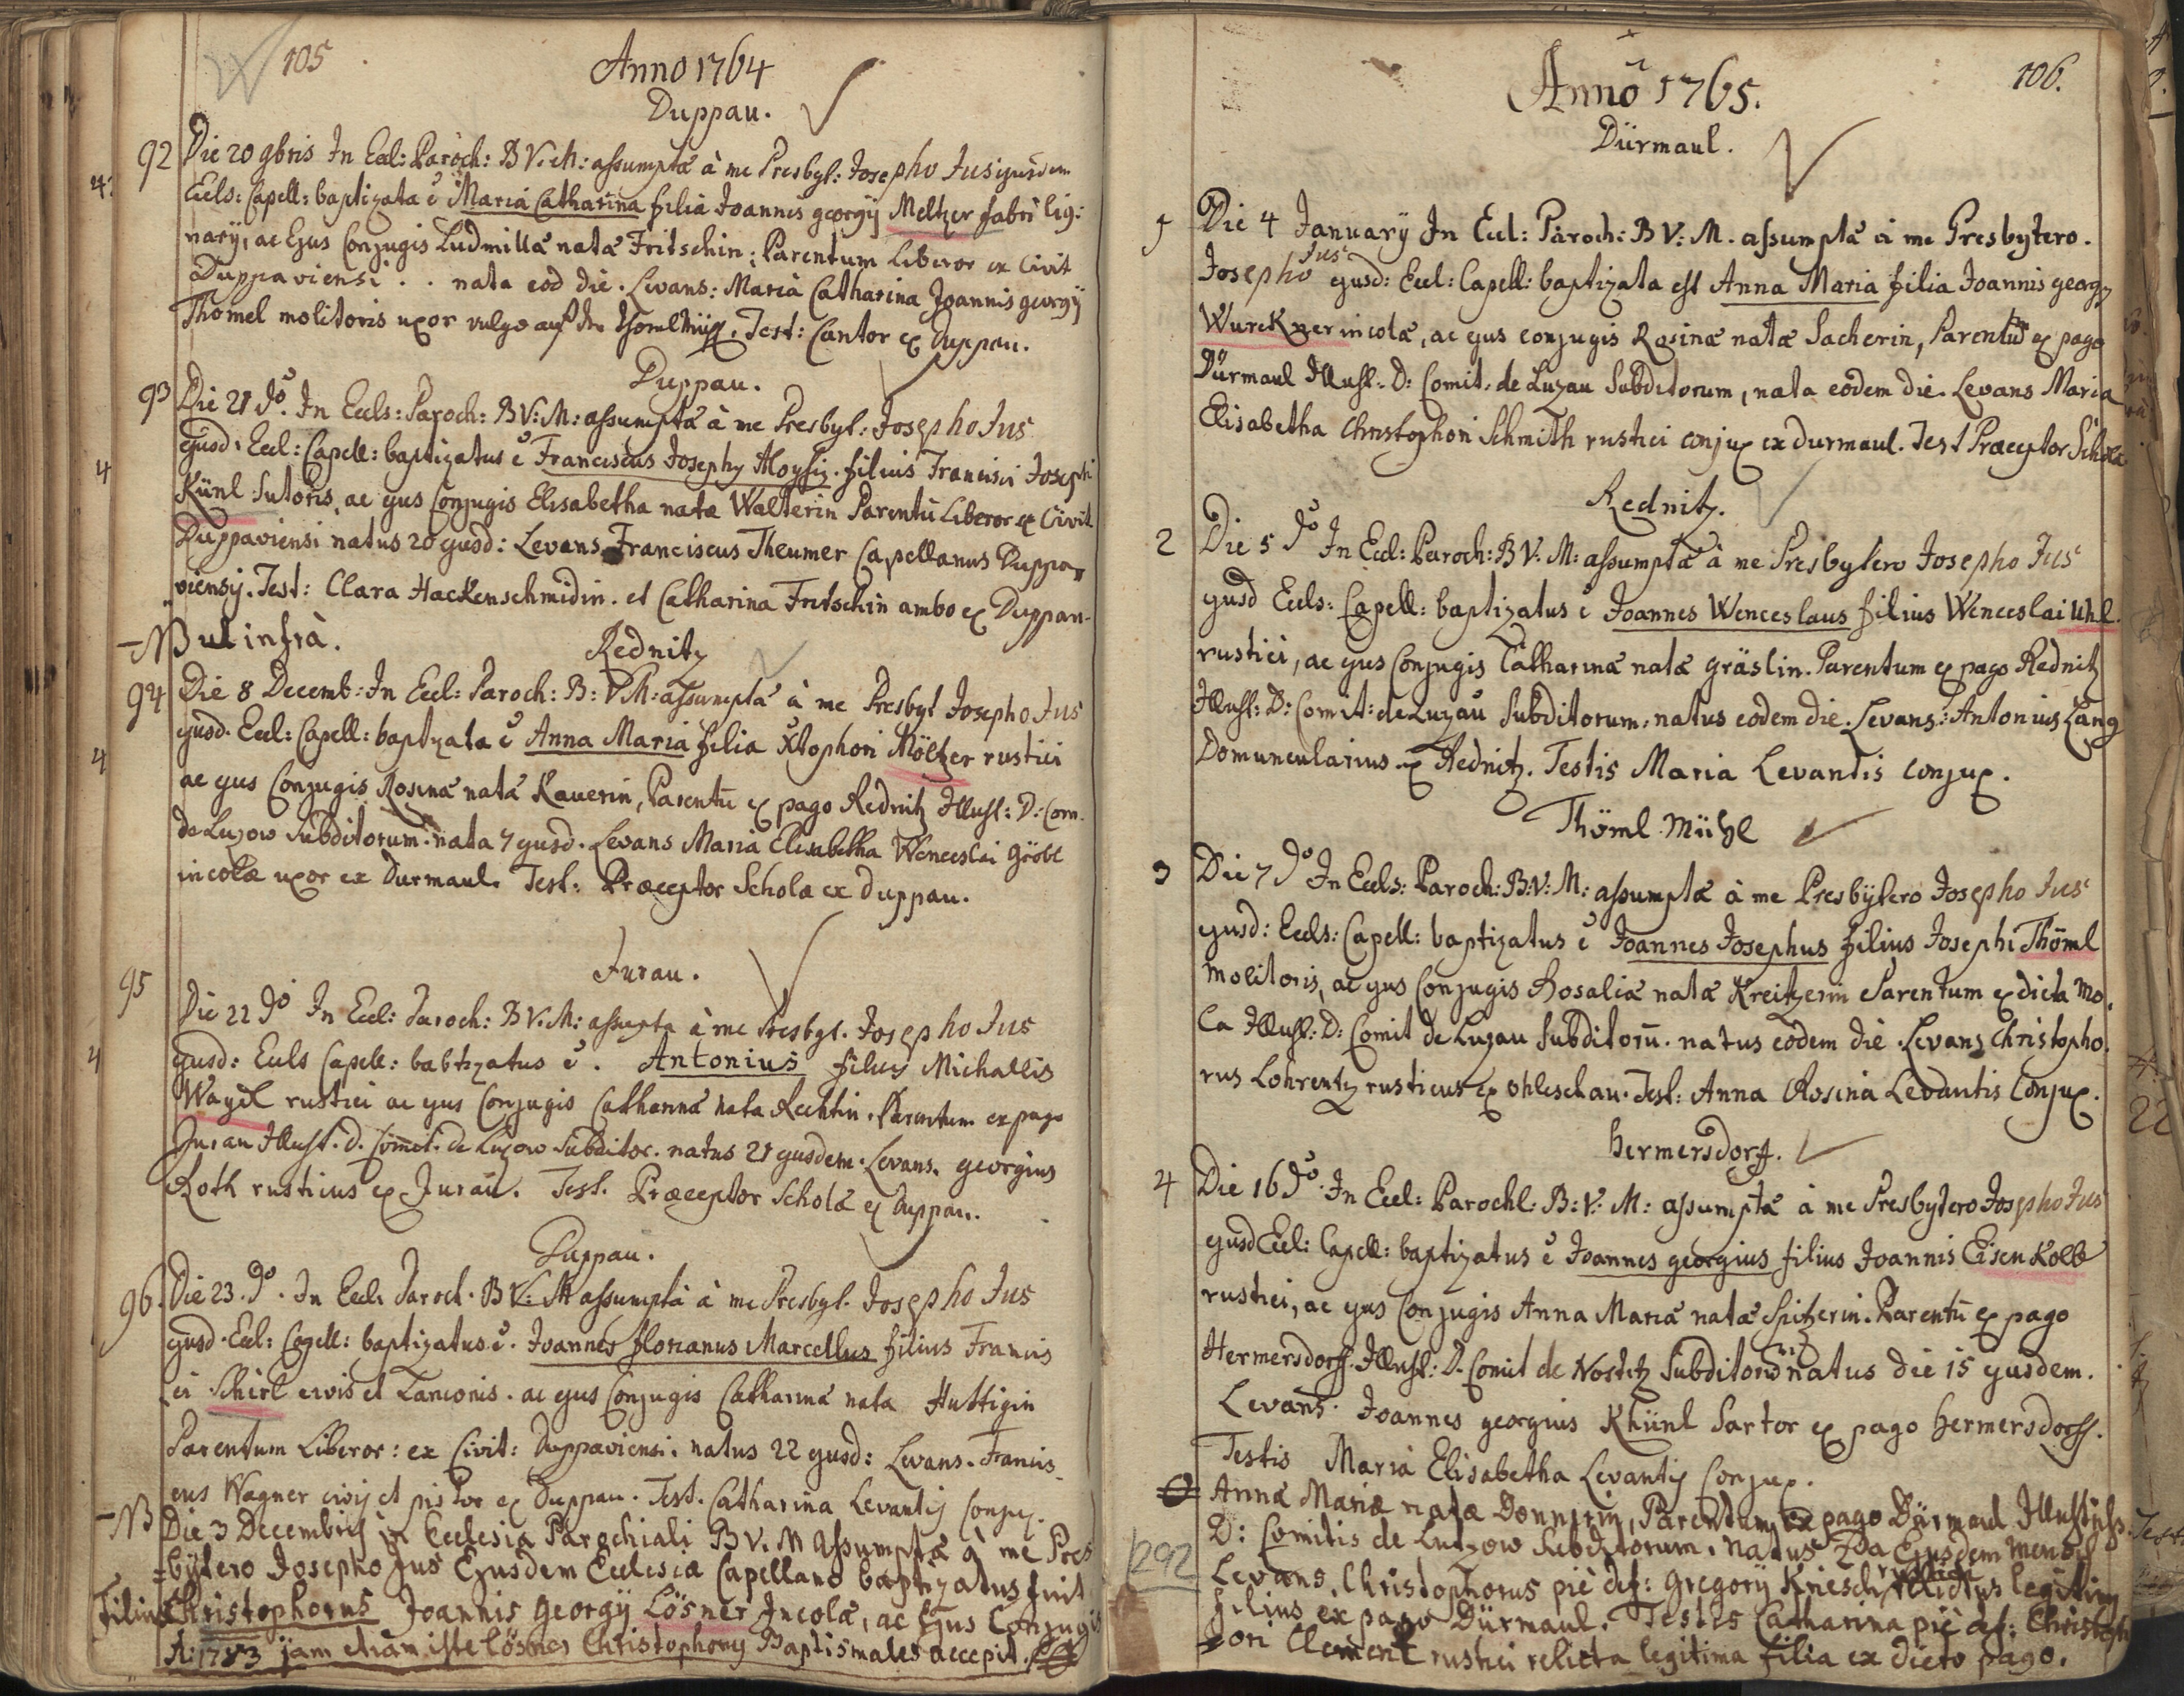 105
Anno 1764
Duppau.
92 Die 20 9bris In Eccl: Paroch: B V. M: assumptæ à me Presbyt: Josepho Jus ejusdem
4. Eccls: Capell: baptizata ẽ Maria Catharina filia Joannis georgÿ Meltzer fabri lig:
narÿ, ac Ejus Conjugis Ludmillæ natæ Fritschin; Parentum Liberor ex Civit
Duppaviensi . . nata eod die. Levans: Maria Catharina Joannis georgÿ
Thomel molitoris uxor vulgo auf der Thomlmühl. Test: Cantor ex Duppau.
Duppau.
93 Die 21 do. In Eccls: Paroch: B V: M: assumptæ à me Presbyt: Josepho Jus
4 ejusd: Eccl: Capell: baptizatus ẽ Franciscus Josephy Aloysiy. filius Francisci Josephi
Künl Sutoris, ac ejus Conjugis Elisabetha natæ Walterin Parentū Liberor ex Civit
Duppaviensi natus 20 ejusd: Levans Franciscus Theumer Capellanus Duppa=
viensij. Test: Clara Hackenschmidin. et Catharina Fritschin ambo ex Duppau.
–NB ut infrà.
Rednitz
94 Die 8 Decemb: In Eccl: Paroch: B: V M: assumptæ à me Presbyt Josepho Jus
4 ejusd. Eccl: Capell: baptizata ẽ Anna Maria filia Xtophori Möltzer rustici
ac ejus Conjugis Rosinæ natæ Kauerin, Parentū ex pago Rednitz Illust: D: Com.
de Luzow Subditorum. nata 7 ejusd. Levans Maria Elisabetha Wenceslai Gröbl
incolæ uxor ex Durmaul. Test: Præceptor Scholæ ex Duppau.
Jurau.
95 Die 22 do In Eccl: Paroch: B V. M: assumpta à me Presbyt. Josepho Jus
4 ejusd: Eccls Capell: babtizatus ẽ. Antonius filiuy Michaelis
Waydl rustici ac ejus Conjugis Catharinæ nata Rechtin. Parentum ex pago
Jurau Illust. D. Comit. de Luzow Subditor. natus 21 ejusdem. Levans. georgius
Roth rusticus ex Jurau. Test. Præceptor Scholæ ex Duppau.
Duppau.
96. Die 23. do. In Eccl. Paroch. B V: M assumptæ à me Presbyt. Josepho Jus
ejusd. Eccl: Capell: baptizatus ẽ. Joannes florianus Marcellus filius Francis
ci Schirl civis et Lanionis. ac ejus Conjugis Catharinæ nata Huttigin
Parentum Liberor: ex Civit: Duppaviensi. natus 22 ejusd: Levans. Francis
cus Wagner civiy et pistor ex Duppau. Test. Catharina Levantiy Conjux.
–NB Die 3 Decembris in Ecclesia Parochiali B V. M Assumptæ à me Pres
=bÿtero Josepho Jus Ejusdem Ecclesiæ Capellano baptizatus fuit
Christophorus Filius Joannis Georgÿ Lösner Incolæ, ac Ejus Conjugis
A: 1783 jam etiam iste Lösner Christophory Baptismales accepit.
106.
Anno 1765.
Dürmaul.
1 Die 4 Januarÿ In Eccl: Paroch: B V: M. assumptæ à me Presbytero.
Josepho Jus ejusd: Eccl: Capell: baptizata est Anna Maria filia Joannis georgy
Wurckner incolæ, ac ejus conjugis Rosinæ natæ Sacherin, Parentum ex pago
Dürmaul Illust: D: Comit. de Luzau Subditorum, nata eodem die. Levans Maria
Elisabetha Christophori Schmith rustici conjux ex Durmaul. Test Præceptor Scholæ
Rednitz.
2 Die 5 do In Eccl: Paroch: B V. M: assumptæ à me Presbytero Josepho Jus
ejusd Eccls: Capell: baptizatus ẽ Joannes Wenceslaus filius Wenceslai Uhl.
rustici, ac ejus Conjugis Catharinæ natæ gräslin. Parentum ex pago Rednitz
Illust: D: Comit: de Luzau Subditorum. natus eodem die. Levans: Antonius Lang
Domuncularius ex Rednitz. Testis Maria Levantis conjux.
Thöml Mühl
3 Die 7 do In Eccls: Paroch: B: V: M: assumptæ à me Presbÿtero Josepho Jus
ejusd: Eccls: Capell: baptizatus ẽ Joannes Josephus filius Josephi Thöml
molitoris, ac ejus Conjugis Rosaliæ natæ Kreitzerin Parentum ex dicta Mo.
la Illust: D: Comit de Luzau Subditorū. natus eodem die. Levans Christopho.
rus Lohrentz rusticus ex Ohleschau. Test: Anna Rosina Levantis Conjux.
Hermersdorff.
4 Die 16 do. In Eccl: Parochl: B: V: M: assumptæ à me Presbytero Josepho Jus
ejusd Eccl: Capell: baptizatus ẽ Joannes georgius filius Joannis Eisenkolb
rustici, ac ejus Conjugis Anna Maria natæ Spitzerin. Parentū ex pago
Hermersdorff. Illust: D. Comit de Nostitz Subditorū natus die 15 ejusdem.
Levans. Joannes georgius Khünl Sartor ex pago Hermersdorff.
Testis Maria Elisabetha Levantiy Conjux.
Annæ Mariæ natæ Donnerin, Parentum ex pago Dürmaul Illustriss.
D: Comitis de Lutzow Subditorum. natus 2da Ejusdem mensis
292 Levans. Christophorus piè def: Gregorÿ Kriesch rustici relictus legitim
filius ex pago Dürmaul. Testis Catharina piè def: Christoph
=ori Clement rustici relicta legitima filia ex dicto pago.
22